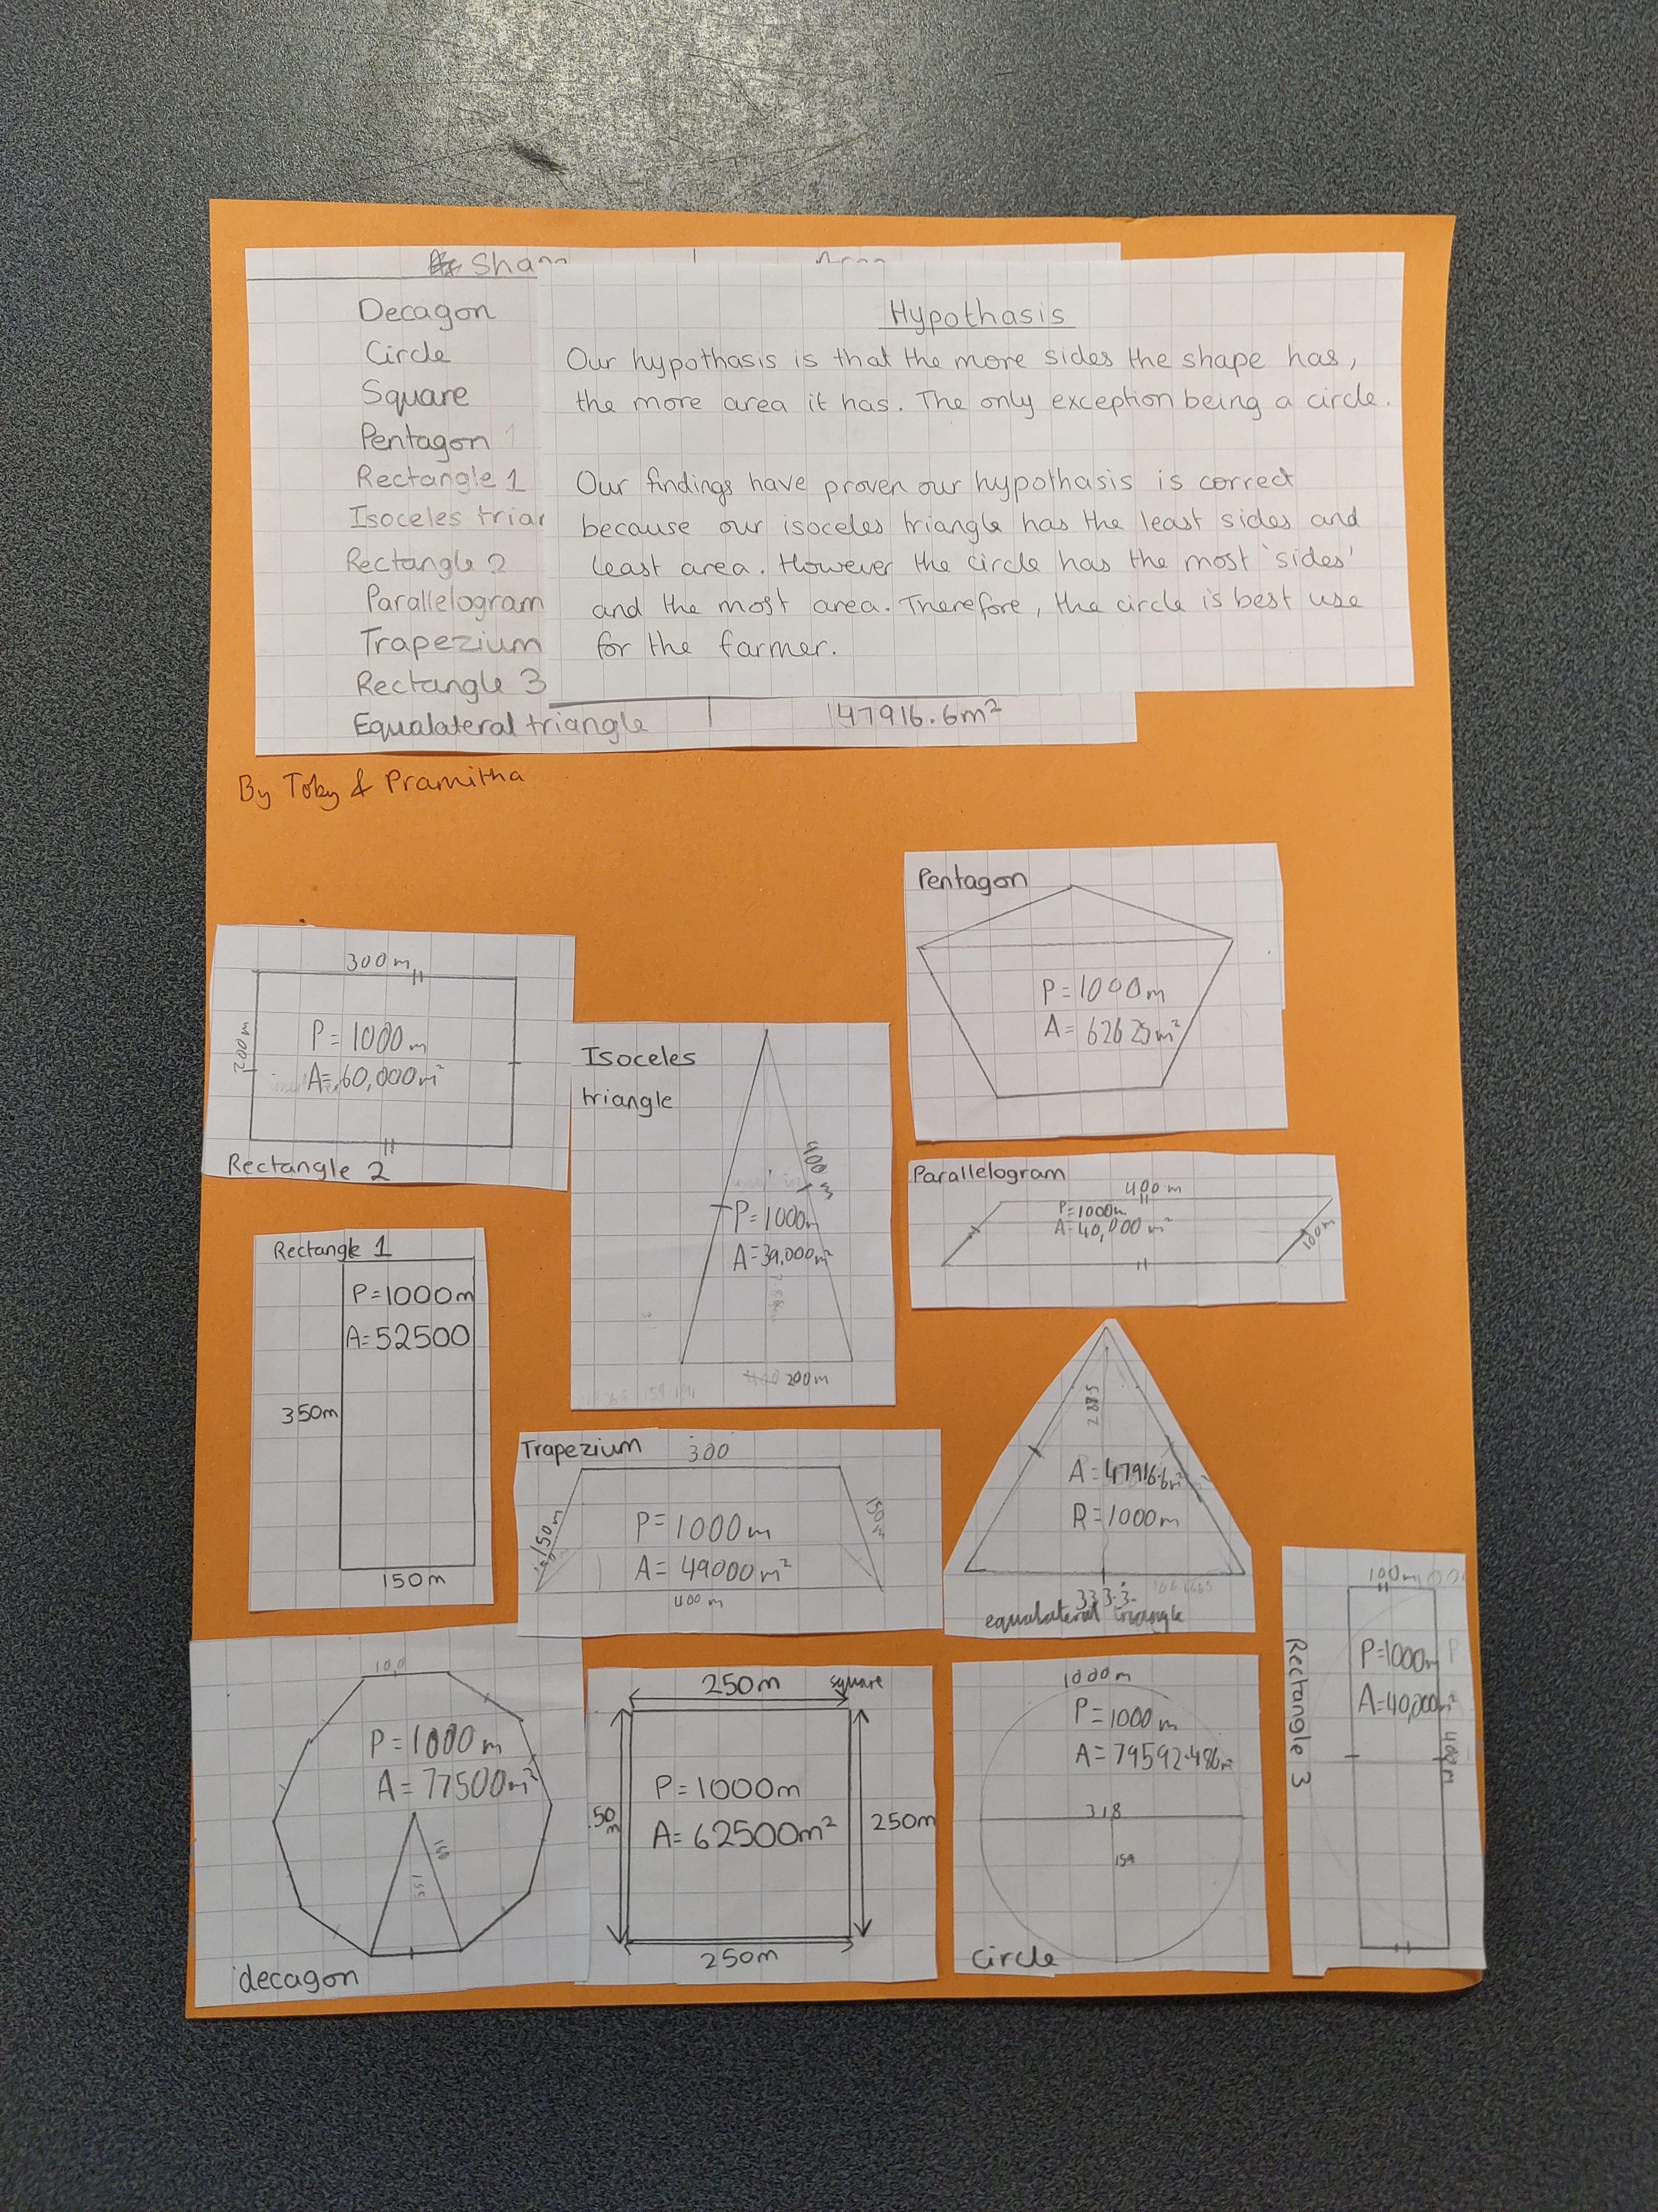 Decagon
Circle
Square
Pentagon
Rectangle 1
Isoceles
Rectangle 2
Parallelogram
Trapezium
Rectangle 3
Equalateral triangle
47916.6m²
Hypothasis
Our hypothasis is that the more sides the shape has,
the more area it has. The only exception being a circle.
Our findings have proven our hypothasis is correct
because our isoceles triangle has the least sides and
least area. However the circle has the most 'sides'
and the most area. Therefore, the circle is best use
for the farmer.
By Toby & Pramitha
Pentagon
P=1000m
A= 62625m²
300m
200m
P= 1000m
A= 60,000m²
Rectangle 2
Isoceles
triangle
400m
P=1000m
A=39,000m²
200m
Parallelogram
400m
P=1000m
A=40,000m²
100m
Rectangle 1
P=1000m
A=52500
350m
150m
Trapezium
300
150m
150m
P=1000m
A= 49000m²
400m
A=47916.6m²
P=1000m
333.3
equalateral triangle
100m
P=1000m
A=40,000m²
400m
Rectangle 3
100
P=1000m
A= 77500m²
155
decagon
250m
square
50m
P=1000m
A=62500m²
250m
250m
1000m
P=1000m
A= 79592.486m
318
159
circle